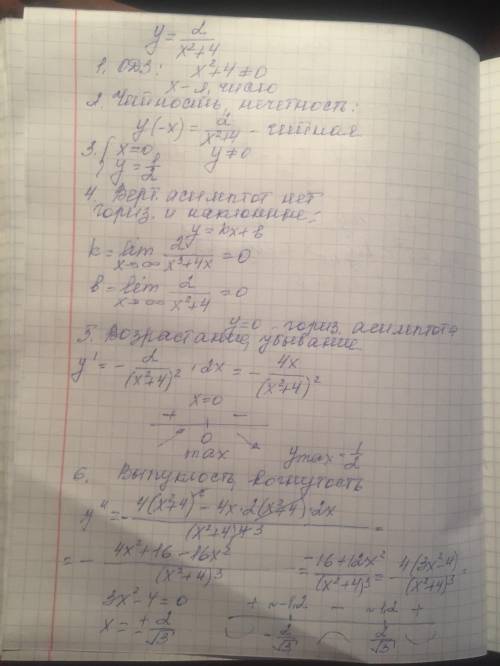 y = 2/(x²+4)
1. ОДЗ: x²+4≠0
x - л. число
2. Чётность, нечётность:
y(-x) = 2/(x²+4) - чётная
3. { x=0, y≠0
{ y = 1/2
4. Верт. асимптот нет
гориз. и наклонные:
y = kx+b
k = lim x→∞ 2/(x³+4x) = 0
b = lim x→∞ 2/(x²+4) = 0
y=0 - гориз. асимптота
5. Возрастание, убывание
y' = - 2/(x²+4)² · 2x = - 4x/(x²+4)²
x=0
+ −
0
max ymax = 1/2
6. Выпуклость, вогнутость
y'' = - (4(x²+4)² - 4x·2(x²+4)·2x)/(x²+4)⁴ ³ =
= - (4x²+16-16x²)/(x²+4)³ = (-16+12x²)/(x²+4)³ = 4(3x²-4)/(x²+4)³ =
3x²-4=0 + ≈-1,2 − ≈1,2 +
x = ± 2/√3 - 2/√3 2/√3